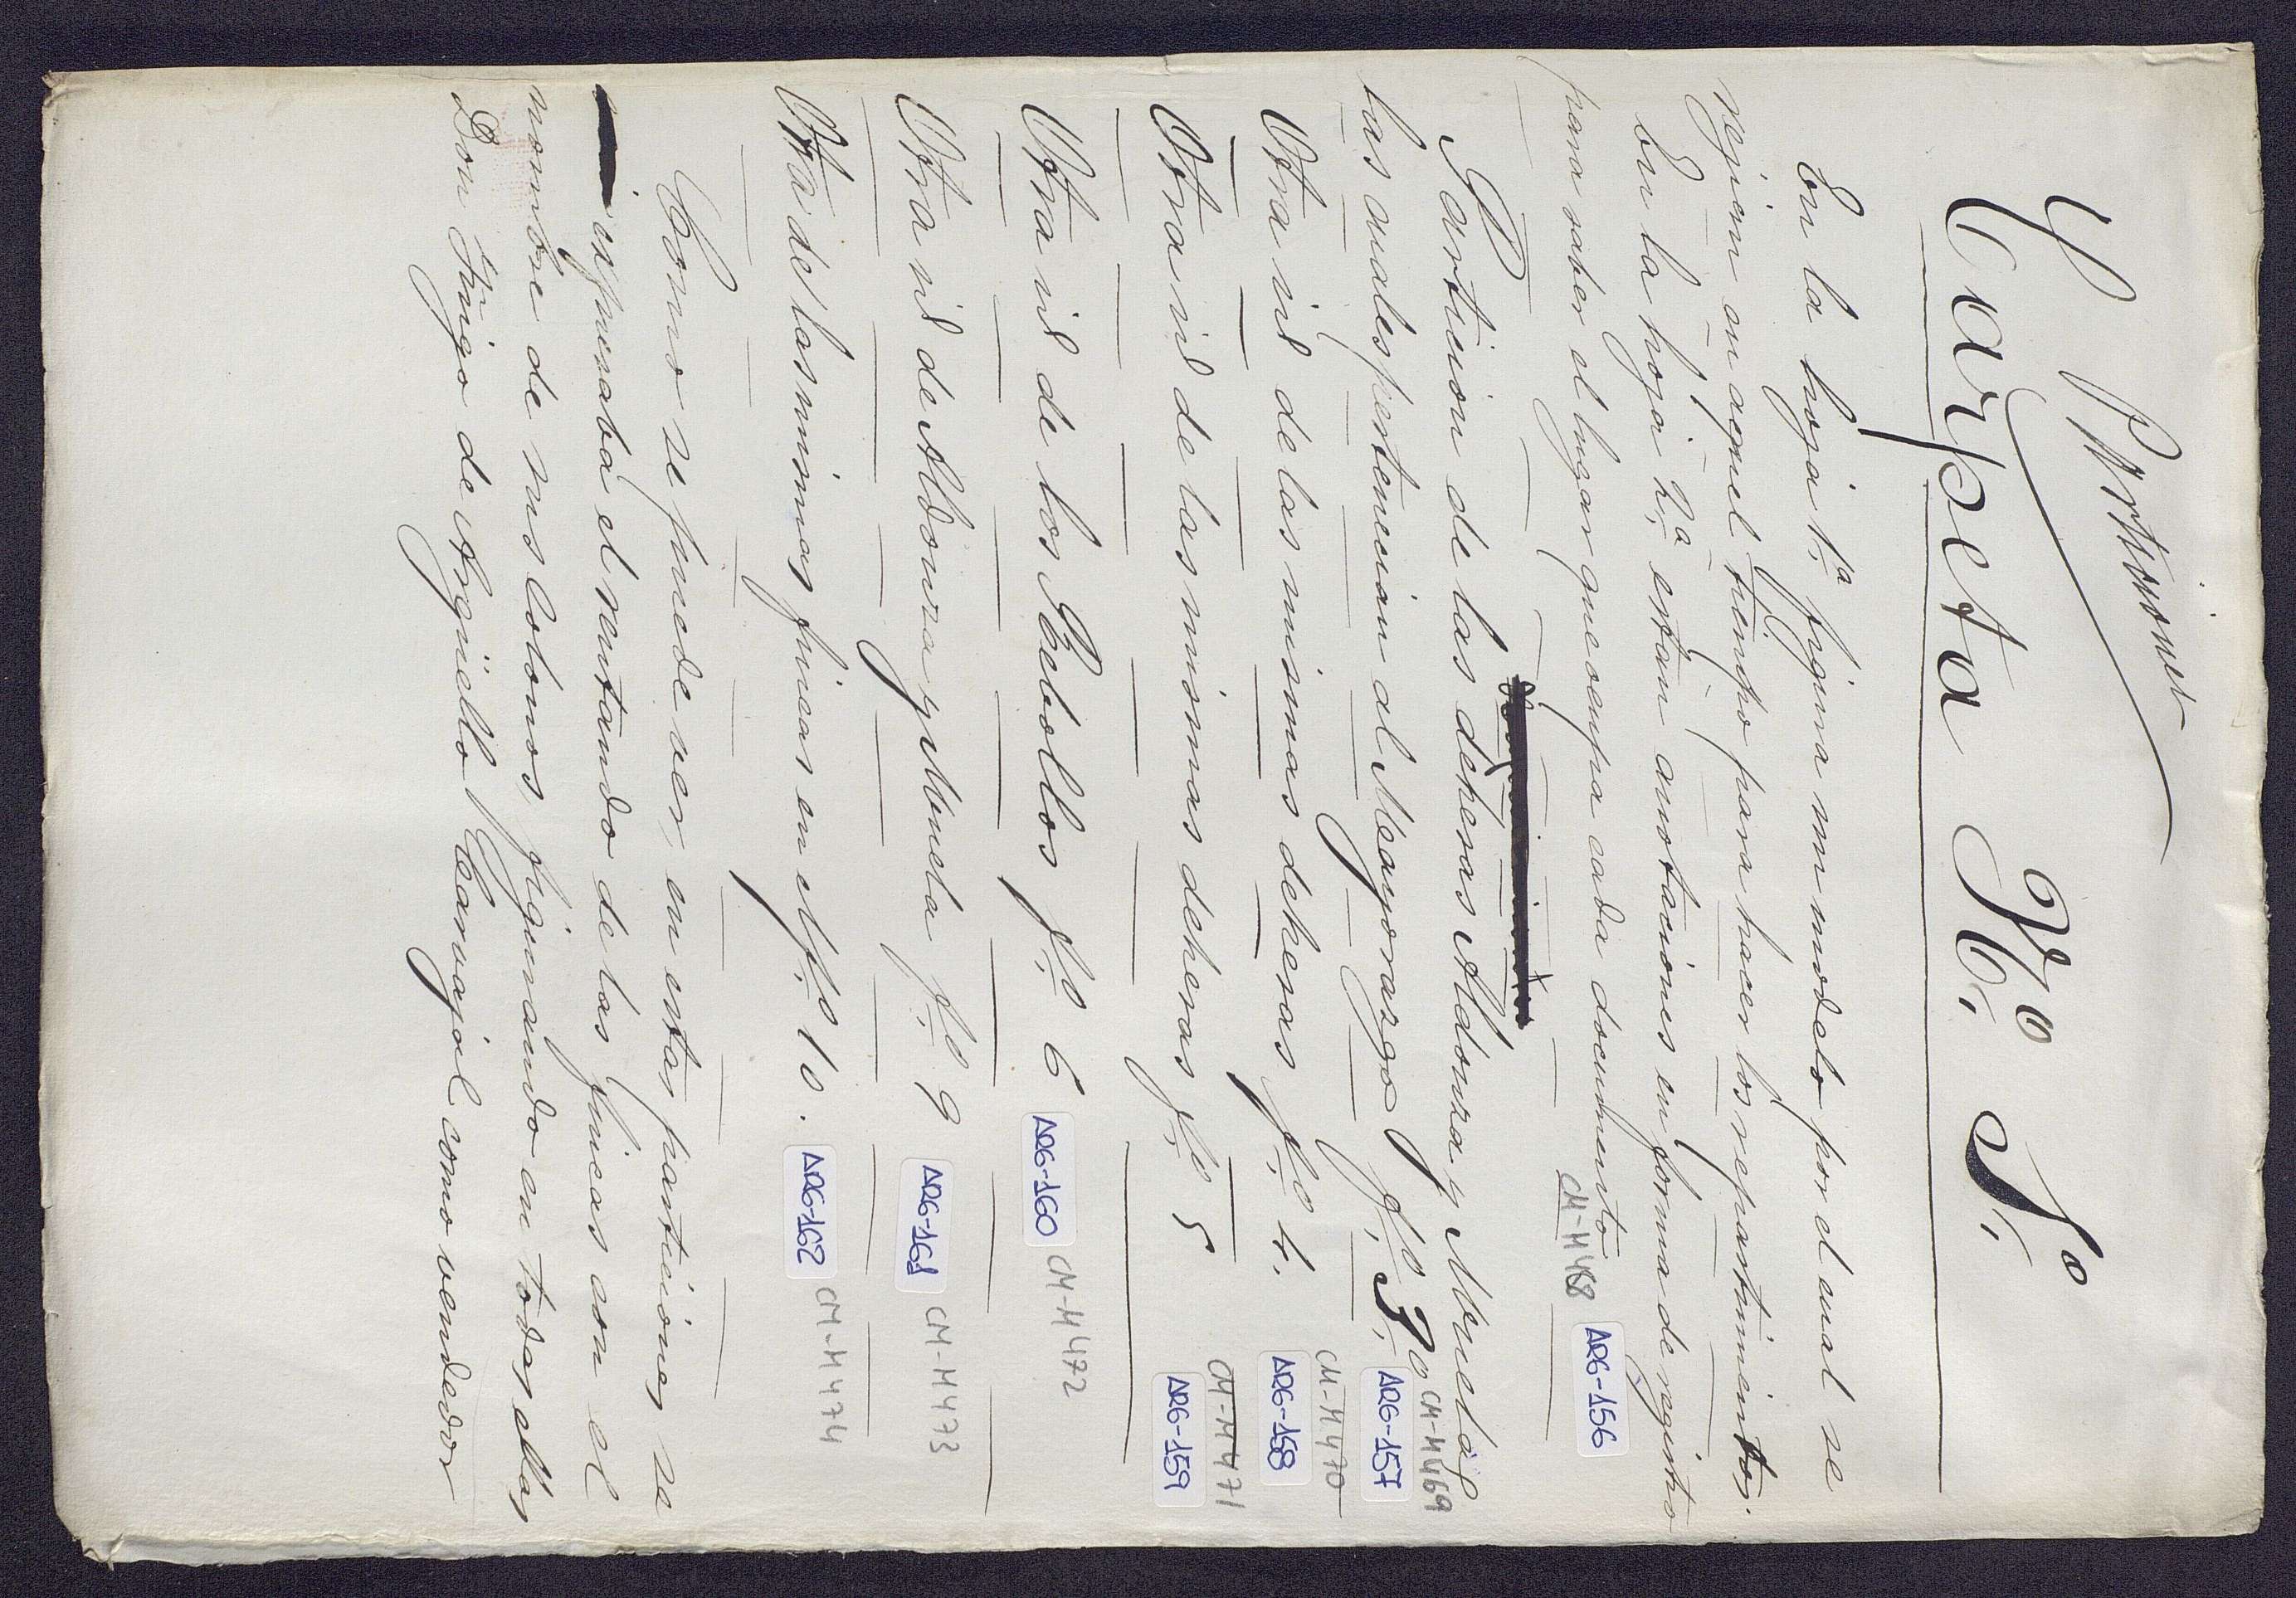 Particiones
Carpeta N.º 1º
En la hoja 1.ª figura un modelo por el cual se
regian en aquel tiempo para hacer los repartimientos.
En la hoja 2.ª estan anotaciones en forma de registro
para saber el lugar que ocupa cada documento
CM-H468 ARG-156
Particion de las dehesas Aldonza y Muela
las cuales pertenecian al Mayorazgo fº 3º
CM-H469 ARG-157
Otra id de las mismas dehesas fº 4.
CM-H470 ARG-158
Otra id de las mismas dehesas fº 5
CM-H471 ARG-159
Otra id de los Rebollos fº 6 ARG-160 CM-H472
Otra id de Aldonza y Muela fº 9 ARG-161 CM-H473
Otra de las mismas fincas en el fº 10. ARG-162 CM-H474
Como se puede ver, en estas particiones ya
espiraba el reintando de las fincas con el
nombre de sus colonos, figurando en todas ellas
Don Iñigo de Argüello Carvajal como vendedor